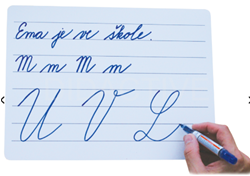 Ema je ve škole.
M m M m
U V L